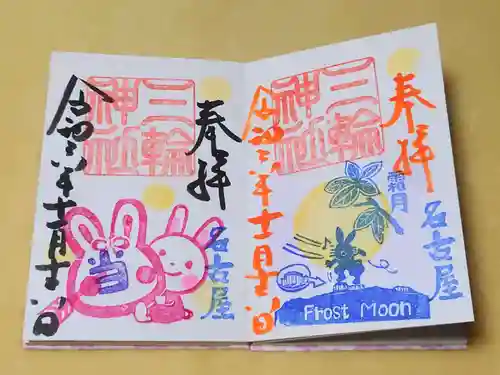 奉拝
名古屋
霜月
三輪
神社
令和六年十一月十一日
Frost Moon
奉拝
名古屋
三輪
神社
令和六年十一月十一日